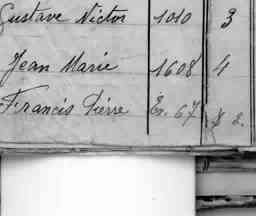 Gustave Victor 1010 3
Jean Marie 1608 4
Francis Pierre Er. 67 2.